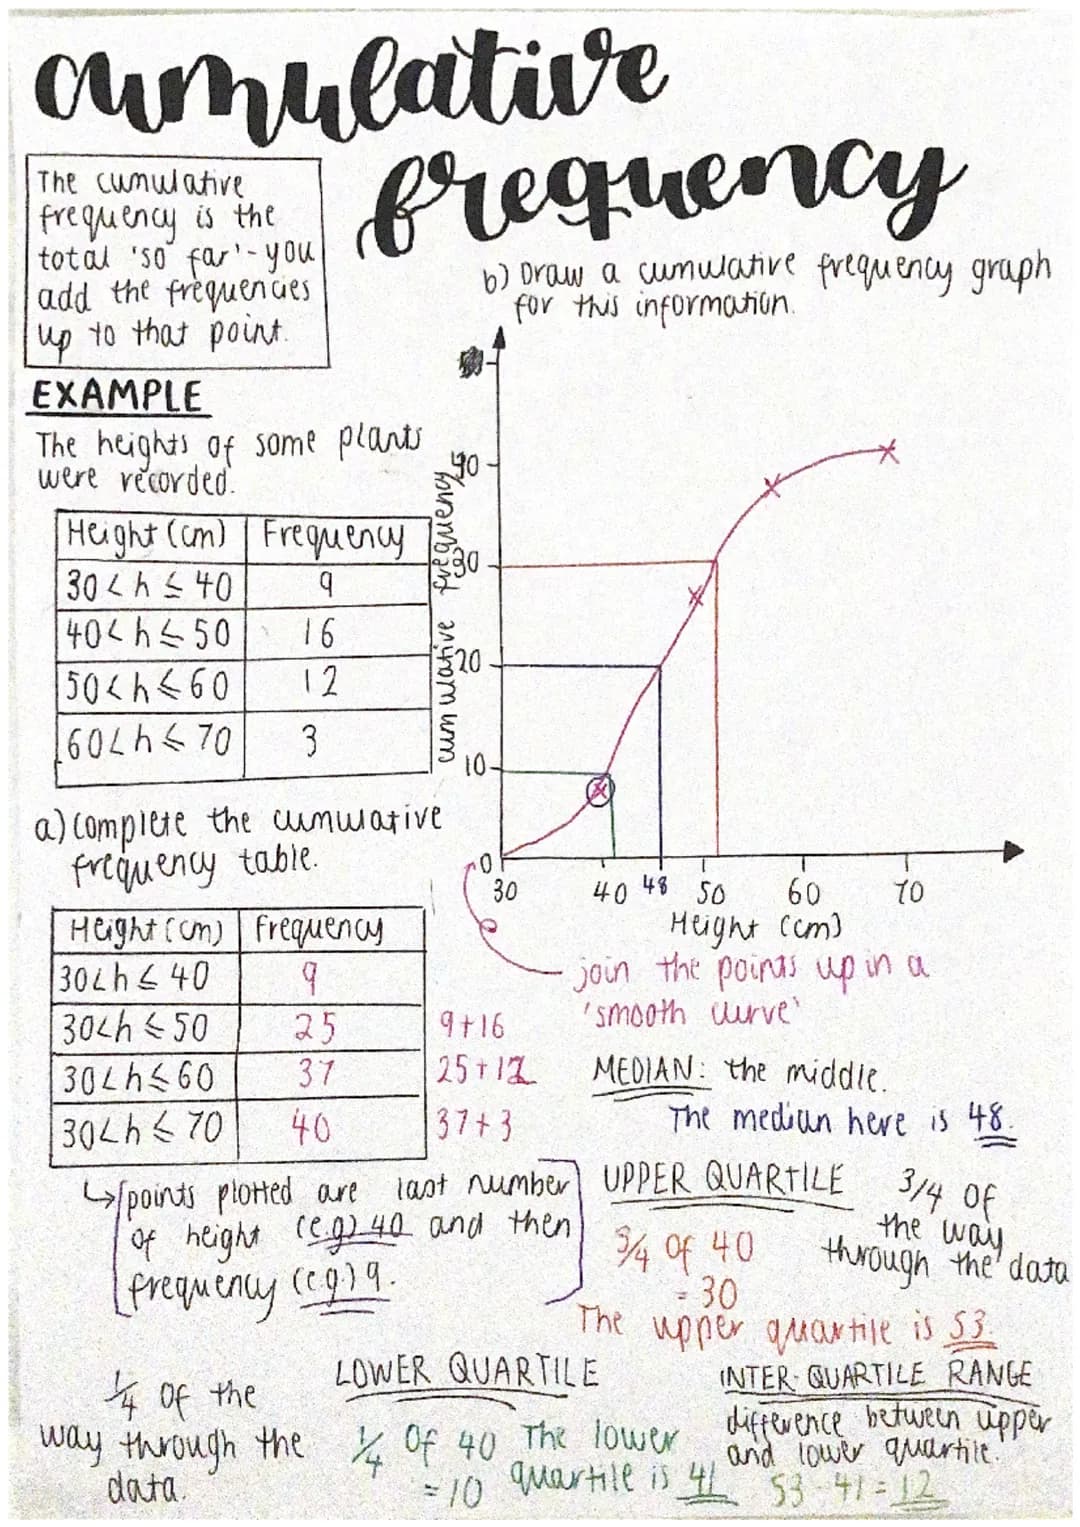 cumulative
frequency
The cumulative
frequency is the
total 'so far' - you
add the frequencies
up to that point.
EXAMPLE
The heights of some plants
were recorded.
Height (cm) Frequency
30 < h ≤ 40 9
40 < h ≤ 50 16
50 < h ≤ 60 12
60 < h ≤ 70 3
a) Complete the cumulative
frequency table.
Height (cm) Frequency
30 < h ≤ 40 9
30 < h ≤ 50 25 9+16
30 < h ≤ 60 37 25+12
30 < h ≤ 70 40 37+3
↳ [points plotted are last number
of height (e.g) 40 and then
frequency (e.g.) 9.]
b) Draw a cumulative frequency graph
for this information.
cumulative frequency
40
30
20
10
0
30 40 48 50 60 70
Height (cm)
join the points up in a
'smooth curve'
MEDIAN: the middle.
The median here is 48.
UPPER QUARTILE 3/4 of
the way
through the data
3/4 of 40
= 30
The upper quartile is 53.
LOWER QUARTILE
1/4 of the
way through the
data.
1/4 of 40
= 10
The lower
quartile is 41
INTER-QUARTILE RANGE
difference between upper
and lower quartile.
53 - 41 = 12